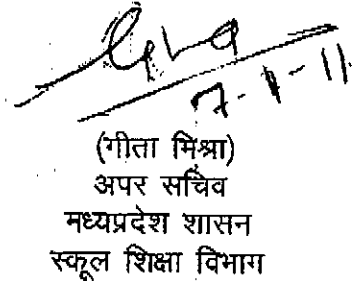 7-1-11
(गीता मिश्रा)
अपर सचिव
मध्यप्रदेश शासन
स्कूल शिक्षा विभाग